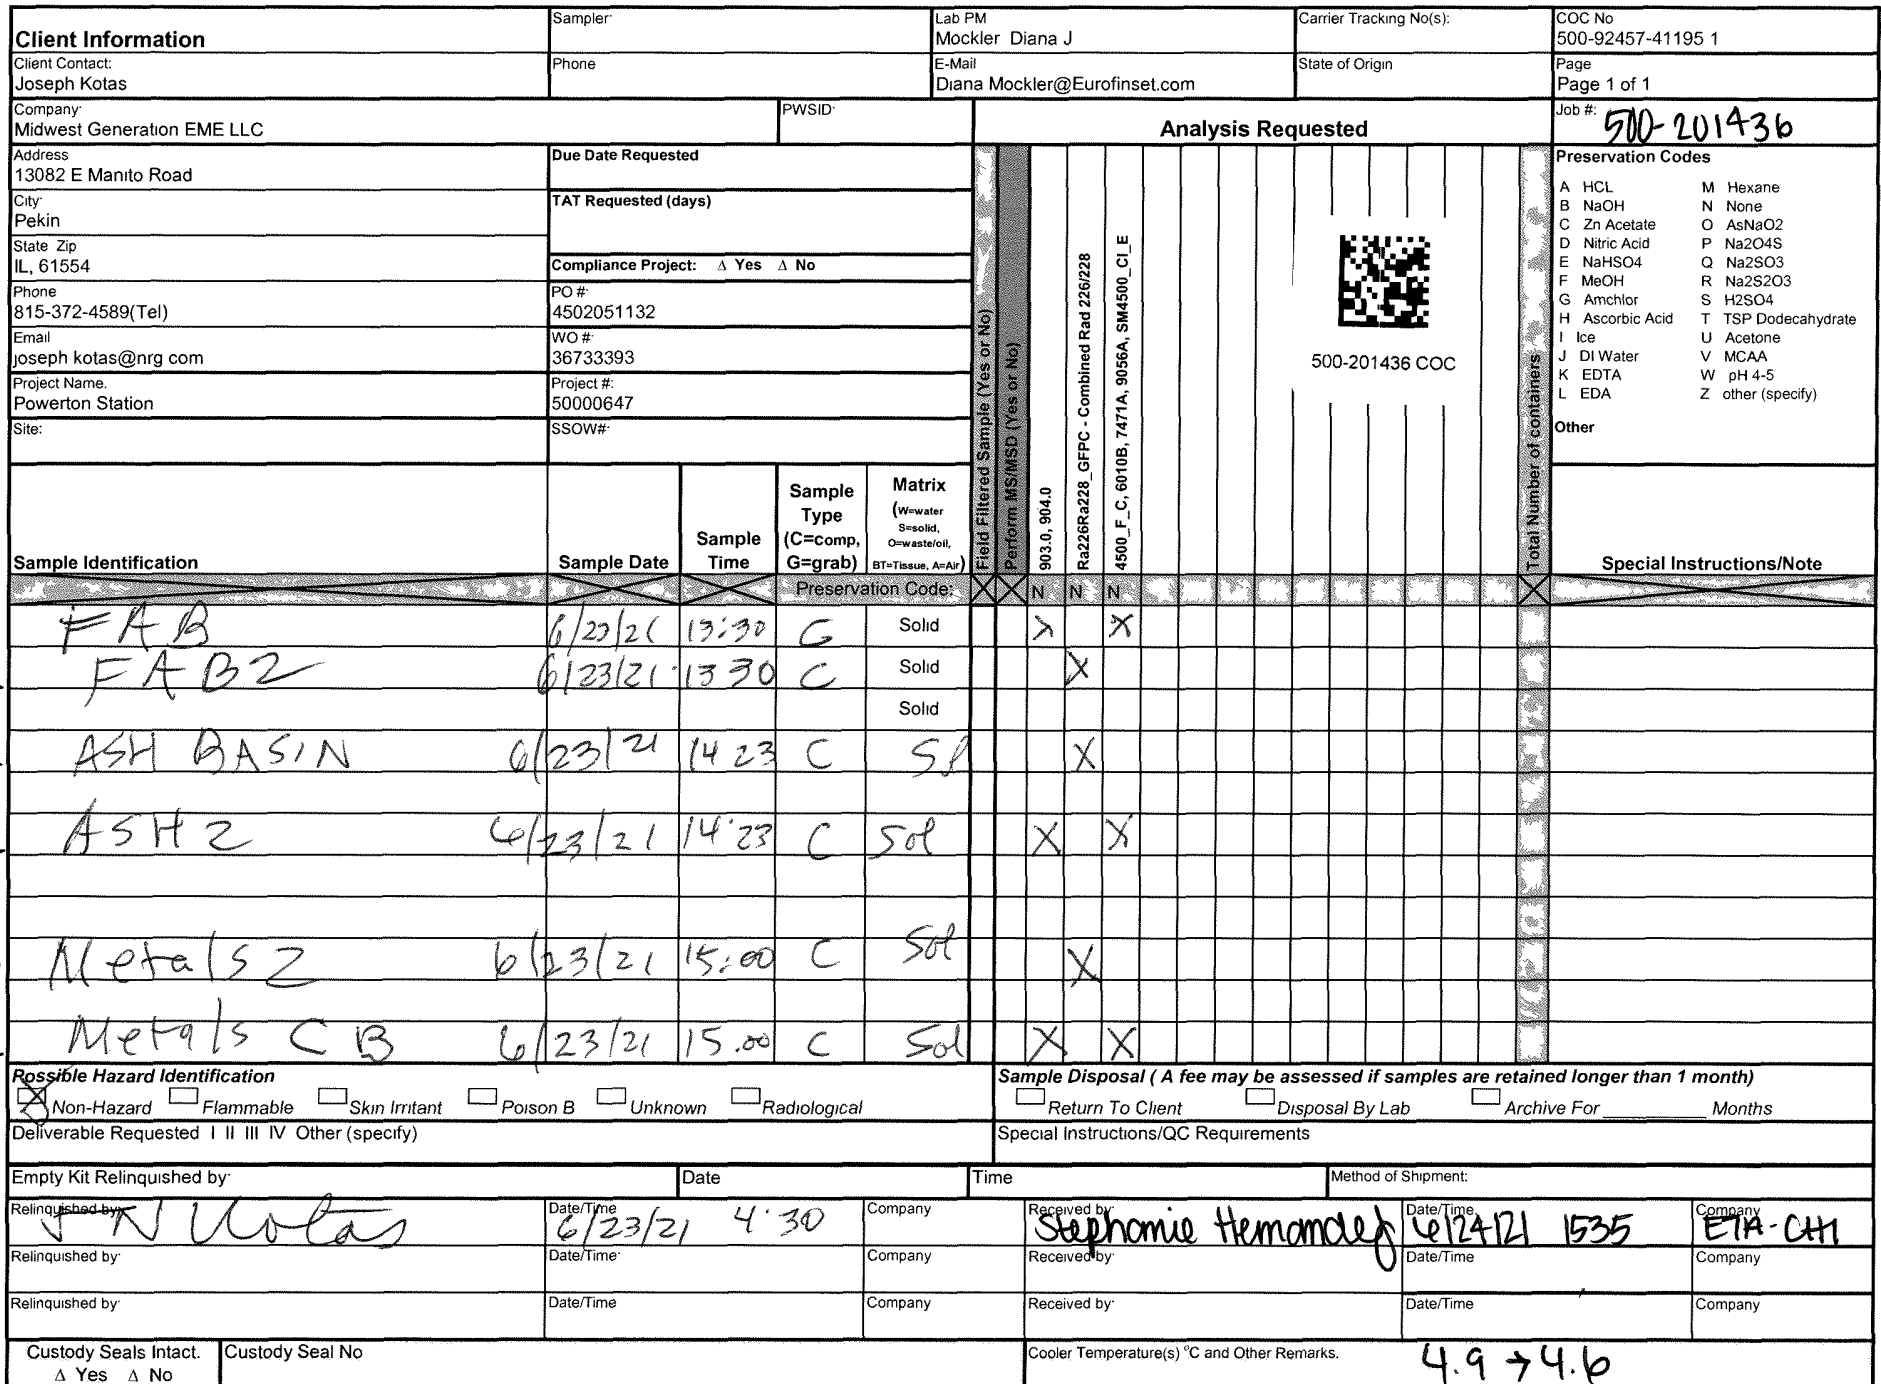 Client Information
Sampler
Lab PM
Mockler Diana J
Carrier Tracking No(s):
COC No
500-92457-41195 1
Client Contact:
Joseph Kotas
Phone
E-Mail
Diana Mockler@Eurofinset.com
State of Origin
Page
Page 1 of 1
Company
Midwest Generation EME LLC
PWSID
Analysis Requested
Job #: 500-201436
Address
13082 E Manito Road
Due Date Requested
City
Pekin
TAT Requested (days)
State Zip
IL, 61554
Compliance Project: Δ Yes Δ No
Phone
815-372-4589(Tel)
PO #
4502051132
Email
joseph kotas@nrg com
WO #
36733393
Project Name.
Powerton Station
Project #:
50000647
Site:
SSOW#
Field Filtered Sample (Yes or No)
Perform MS/MSD (Yes or No)
903.0, 904.0
Ra226Ra228_GFPC - Combined Rad 226/228
4500_F_C, 6010B, 7471A, 9056A, SM4500_Cl_E
500-201436 COC
Total Number of containers
Preservation Codes
A HCL M Hexane
B NaOH N None
C Zn Acetate O AsNaO2
D Nitric Acid P Na2O4S
E NaHSO4 Q Na2SO3
F MeOH R Na2S2O3
G Amchlor S H2SO4
H Ascorbic Acid T TSP Dodecahydrate
I Ice U Acetone
J DI Water V MCAA
K EDTA W pH 4-5
L EDA Z other (specify)
Other
Sample Identification
Sample Date
Sample Time
Sample Type (C=comp, G=grab)
Matrix (W=water S=solid, O=waste/oil, BT=Tissue, A=Air)
Special Instructions/Note
Preservation Code: X X N N N X
FAB 6/23/21 13:30 G Solid X X
FAB2 6/23/21 13 30 C Solid X
Solid
ASH BASIN 6/23/21 14 23 C X
ASH 2 6/23/21 14:23 C Sol X X
Metals 2 6/23/21 15:00 C Sol X
Metals CB 6/23/21 15.00 C Sol X X
Possible Hazard Identification
X Non-Hazard Flammable Skin Irritant Poison B Unknown Radiological
Sample Disposal ( A fee may be assessed if samples are retained longer than 1 month)
Return To Client Disposal By Lab Archive For Months
Deliverable Requested I II III IV Other (specify)
Special Instructions/QC Requirements
Empty Kit Relinquished by
Date
Time
Method of Shipment:
Relinquished by
JN Kotas
Date/Time
6/23/21 4:30
Company
Received by
Stephanie Hernandez
Date/Time
6/24/21 1535
Company
ETA-CHI
Relinquished by
Date/Time
Company
Received by
Date/Time
Company
Relinquished by
Date/Time
Company
Received by
Date/Time
Company
Custody Seals Intact.
Δ Yes Δ No
Custody Seal No
Cooler Temperature(s) °C and Other Remarks.
4.9 → 4.6